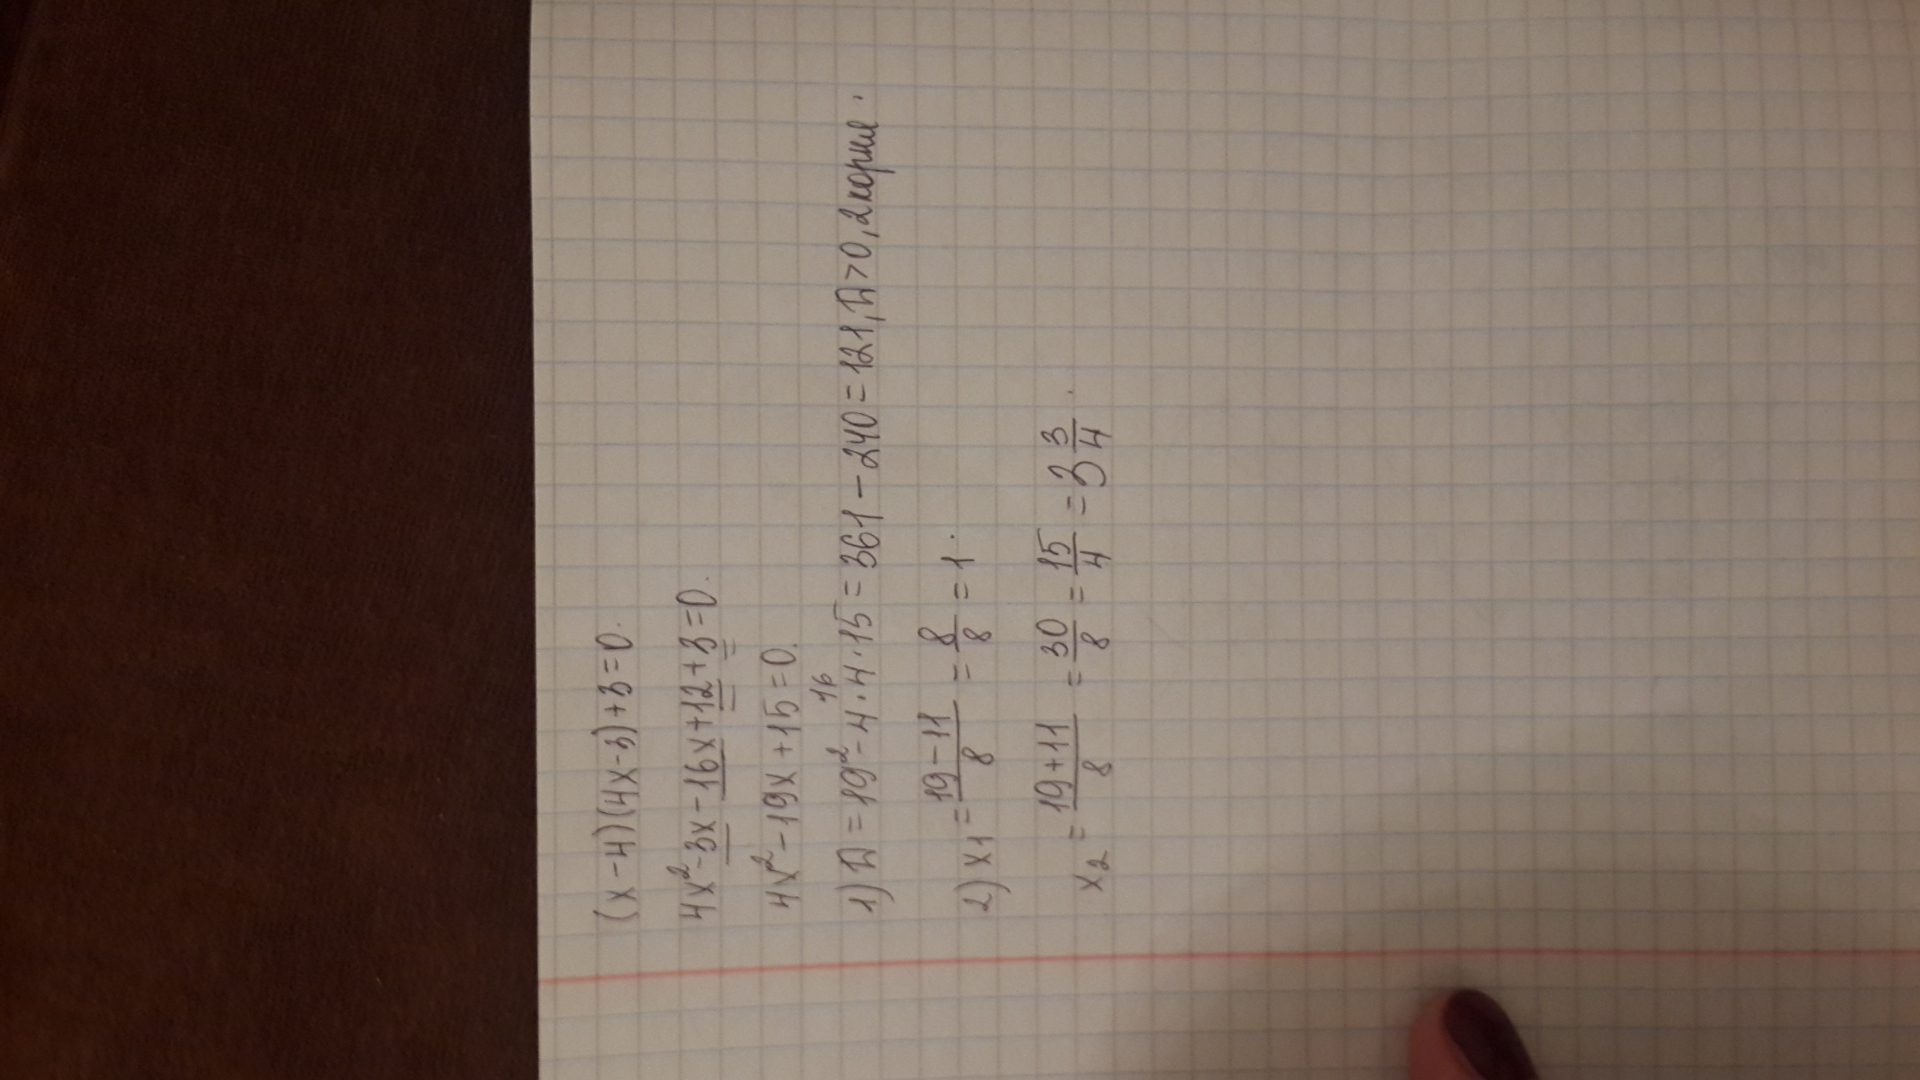 (x-4)(4x-3)+3=0.
4x²-3x-16x+12+3=0.
4x²-19x+15=0.
1) D=19²-4·4·15=361-240=121, D>0, 2 корня.
16
2) x₁=(19-11)/8=8/8=1.
x₂=(19+11)/8=30/8=15/4=3 3/4.